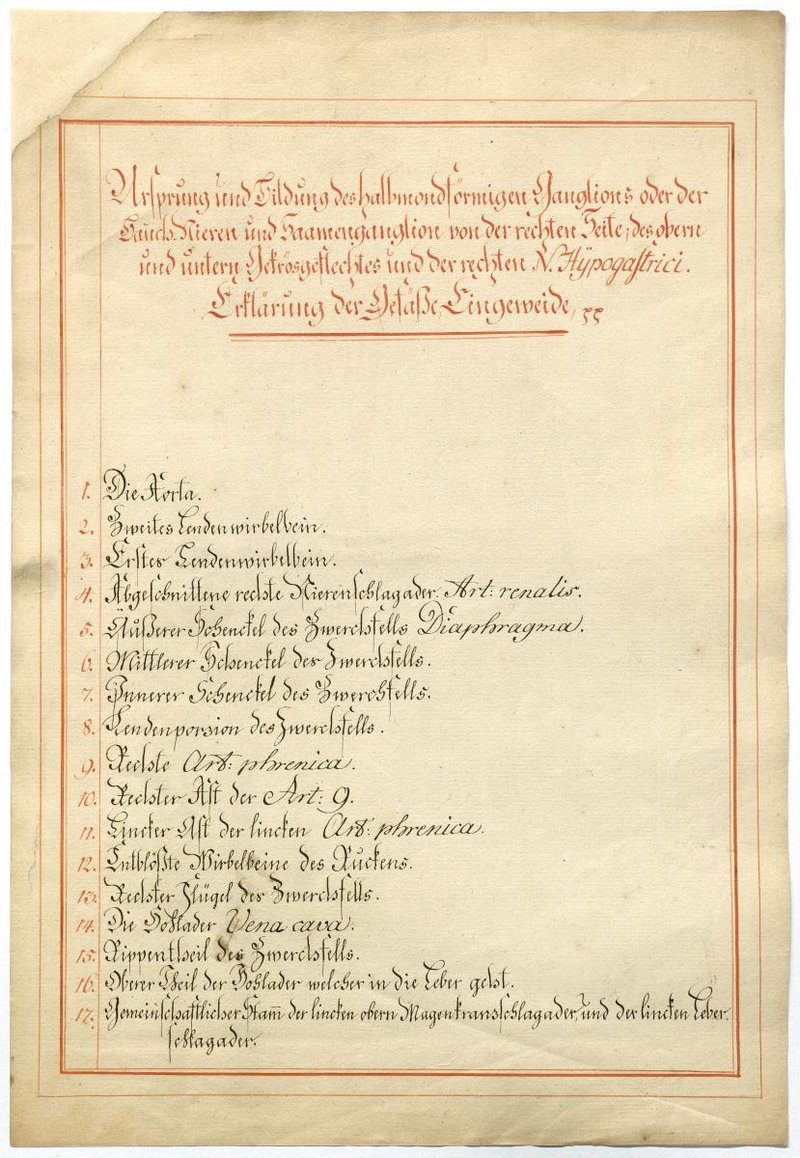 Ursprung und Bildung des halbmondförmigen Ganglions oder der
Bauch Nieren und Saamenganglion von der rechten Seite, des obern
und untern Gekrösgeflechtes und der rechten N. Hÿpogastrici.
Erklärung der Gefäße, Eingeweide,
1. Die Aorta.
2. Zweites Lendenwirbelbein.
3. Erstes Lendenwirbelbein.
4. Abgeschnittene rechte Nierenschlagader. Art: renalis.
5. Äußerer Schenckel des Zwerchfells Diaphragma.
6. Mittlerer Schenckel des Zwerchfells.
7. Innerer Schenckel des Zwerchfells.
8. Lendenporzion des Zwerchfells.
9. Rechte Art: phrenica.
10. Rechter Ast der Art: 9.
11. Lincker Ast der lincken Art: phrenica.
12. Entblößte Wirbelbeine des Ruckens.
13. Rechter Flügel des Zwerchfells.
14. Die Hohlader Vena cava.
15. Rippentheil des Zwerchfells.
16. Oberer Theil der Hohlader welcher in die Leber geht.
17. Gemeinschaftlicher Stam̄ der lincken obern Magenkranschlagader, und der lincken Leber-
schlagader.